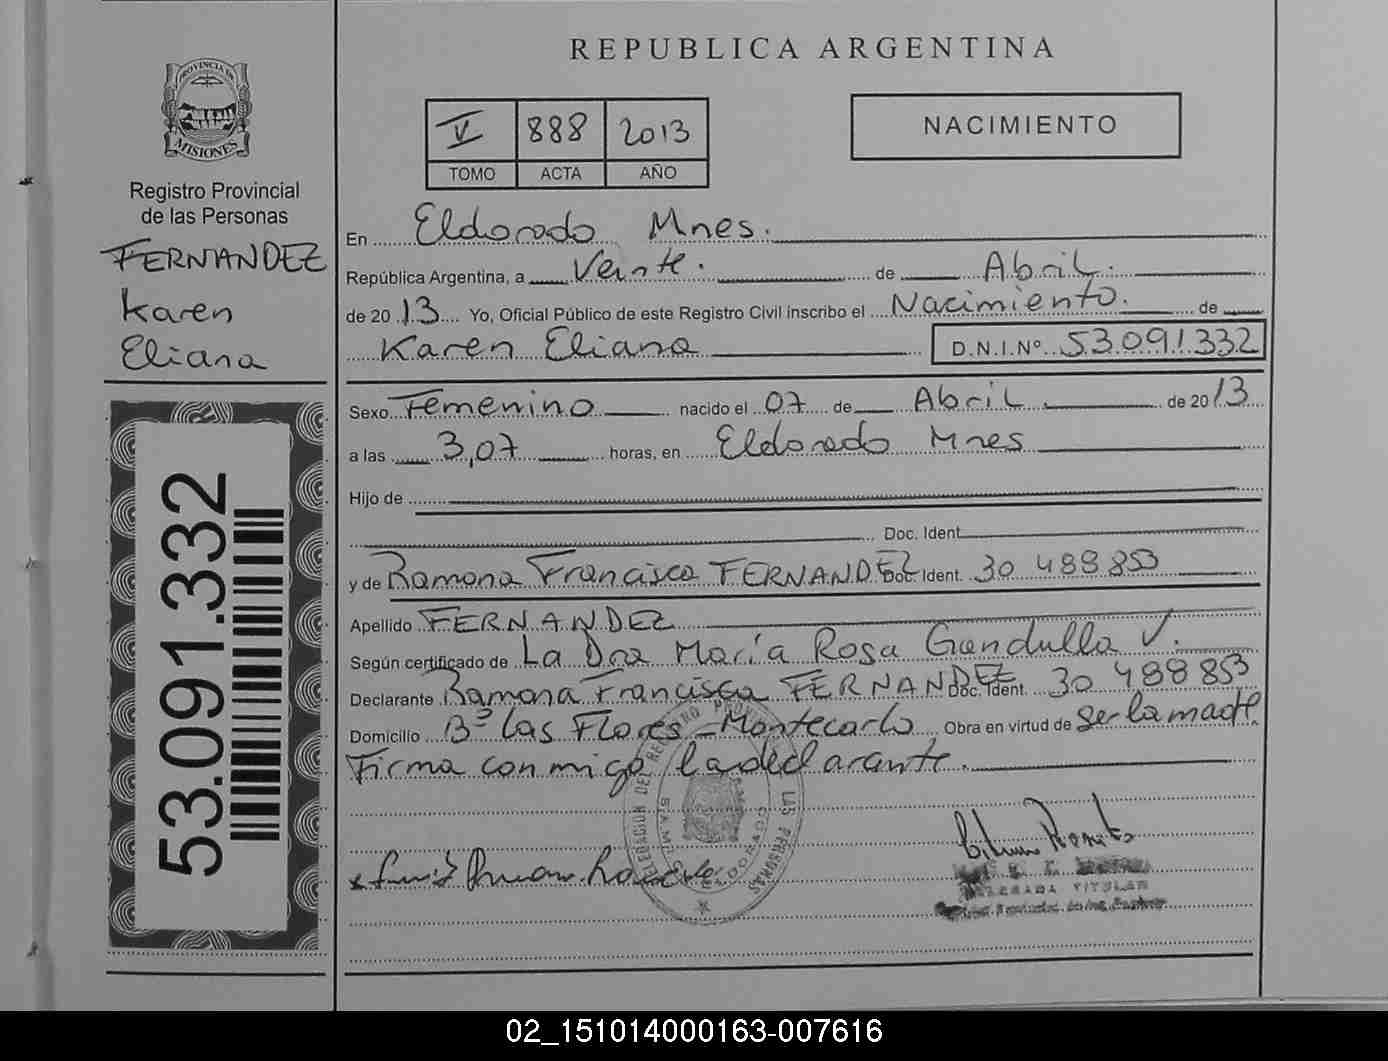 REPUBLICA ARGENTINA
PROVINCIA DE
MISIONES
Registro Provincial
de las Personas
FERNANDEZ
Karen
Eliana
53.091.332
V 888 2013
TOMO ACTA AÑO
NACIMIENTO
En Eldorado Mnes.
República Argentina, a Veinte. de Abril.
de 2013 Yo, Oficial Público de este Registro Civil inscribo el Nacimiento. de
Karen Eliana D.N.I.Nº 53.091.332
Sexo Femenino nacido el 07 de Abril de 2013
a las 3,07 horas, en Eldorado Mnes
Hijo de
Doc. Ident.
y de Ramona Francisca FERNANDEZ Doc. Ident. 30 488 853
Apellido FERNANDEZ
Según certificado de La Dra María Rosa Gandulla V.
Declarante Ramona Francisca FERNANDEZ Doc. Ident. 30 488 853
Domicilio Bº Las Flores - Montecarlo Obra en virtud de ser la madre
Firma conmigo la declarante.
DELEGACION DEL REGISTRO LAS PERSONAS
ELDORADO
TITULAR
02_151014000163-007616